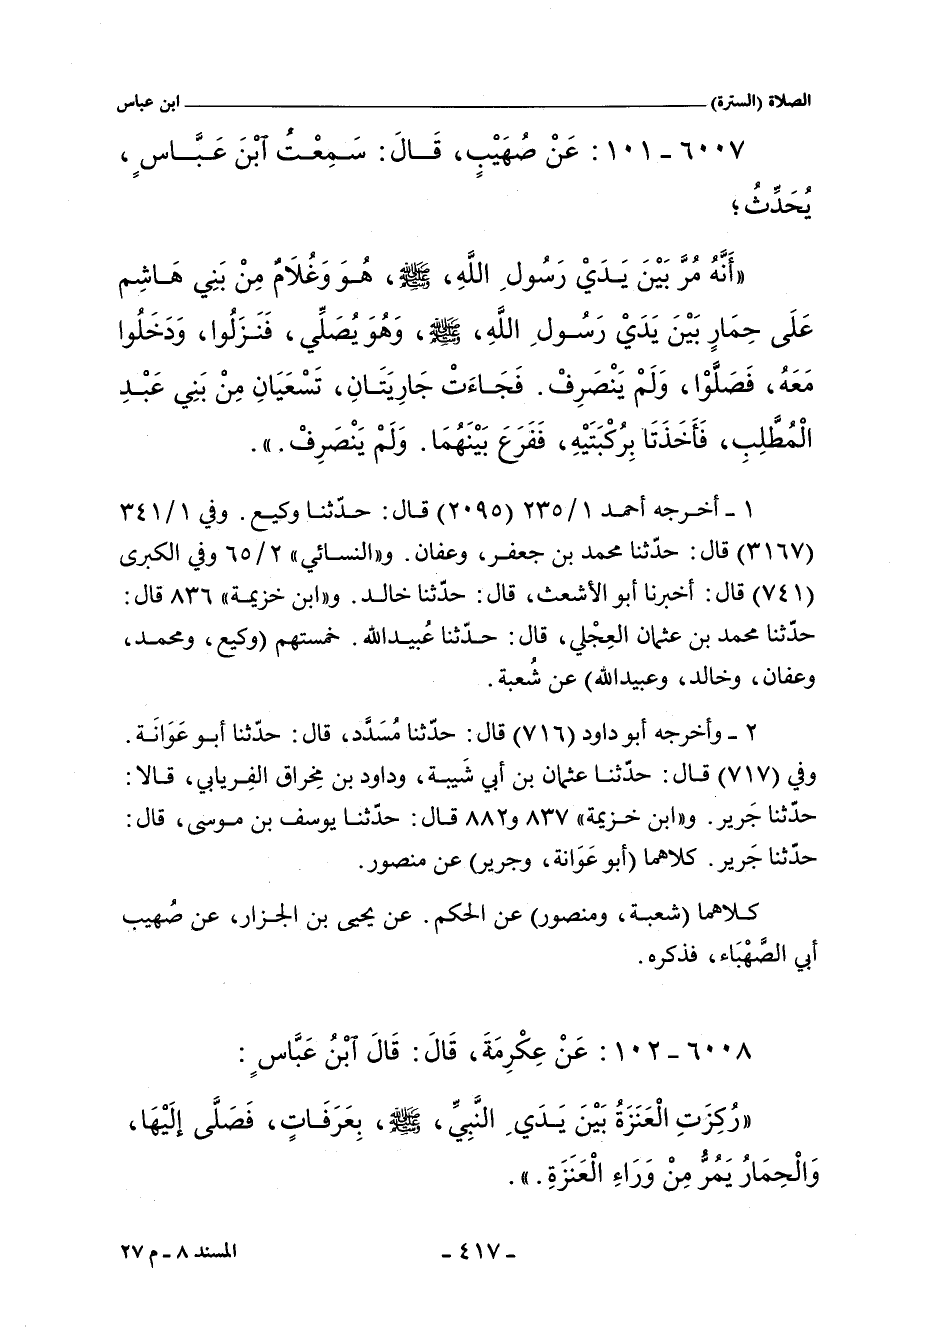 الصلاة (السترة) ـــــــــــــــــــــــــــــــــــــــــــــــــــــــ ابن عباس
٦٠٠٧ ـ ١٠١ : عَنْ صُهَيْبٍ، قَالَ: سَمِعْتُ ٱبْنَ عَبَّاسٍ،
يُحَدِّثُ؛
«أَنَّهُ مُرَّ بَيْنَ يَدَيْ رَسُولِ اللَّهِ، ﷺ، هُوَ وَغُلَامٌ مِنْ بَنِي هَاشِمٍ
عَلَى حِمَارٍ بَيْنَ يَدَيْ رَسُولِ اللَّهِ، ﷺ، وَهُوَ يُصَلِّي، فَنَزَلُوا، وَدَخَلُوا
مَعَهُ، فَصَلَّوْا، وَلَمْ يَنْصَرِفْ. فَجَاءَتْ جَارِيَتَانِ، تَسْعَيَانِ مِنْ بَنِي عَبْدِ
الْمُطَّلِبِ، فَأَخَذَتَا بِرُكْبَتَيْهِ، فَفَرَعَ بَيْنَهُمَا. وَلَمْ يَنْصَرِفْ.».
١ ـ أخرجه أحمد ٢٣٥/١ (٢٠٩٥) قال: حدّثنا وكيع. وفي ٣٤١/١
(٣١٦٧) قال: حدّثنا محمد بن جعفر، وعفان. و«النسائي» ٦٥/٢ وفي الكبرى
(٧٤١) قال: أخبرنا أبو الأشعث، قال: حدّثنا خالد. و«ابن خزيمة» ٨٣٦ قال:
حدّثنا محمد بن عثمان العِجْلي، قال: حدّثنا عُبيدالله. خمستهم (وكيع، ومحمد،
وعفان، وخالد، وعبيدالله) عن شُعبة.
٢ ـ وأخرجه أبو داود (٧١٦) قال: حدّثنا مُسَدَّد، قال: حدّثنا أبو عَوَانَة.
وفي (٧١٧) قال: حدّثنا عثمان بن أبي شَيبة، وداود بن مخراق الفِريابي، قالا:
حدّثنا جَرير. و«ابن خزيمة» ٨٣٧ و٨٨٢ قال: حدّثنا يوسف بن موسى، قال:
حدّثنا جَرير. كلاهما (أبو عَوَانة، وجرير) عن منصور.
كلاهما (شعبة، ومنصور) عن الحكم. عن يحيى بن الجزار، عن صُهيب
أبي الصَّهْبَاء، فذكره.
٦٠٠٨ ـ ١٠٢ : عَنْ عِكْرِمَةَ، قَالَ: قَالَ ٱبْنُ عَبَّاسٍ:
«رُكِزَتِ الْعَنَزَةُ بَيْنَ يَدَيِ النَّبِيِّ، ﷺ، بِعَرَفَاتٍ، فَصَلَّى إِلَيْهَا،
وَالْحِمَارُ يَمُرُّ مِنْ وَرَاءِ الْعَنَزَةِ.».
ـ ٤١٧ ـ
المسند ٨ ـ م ٢٧